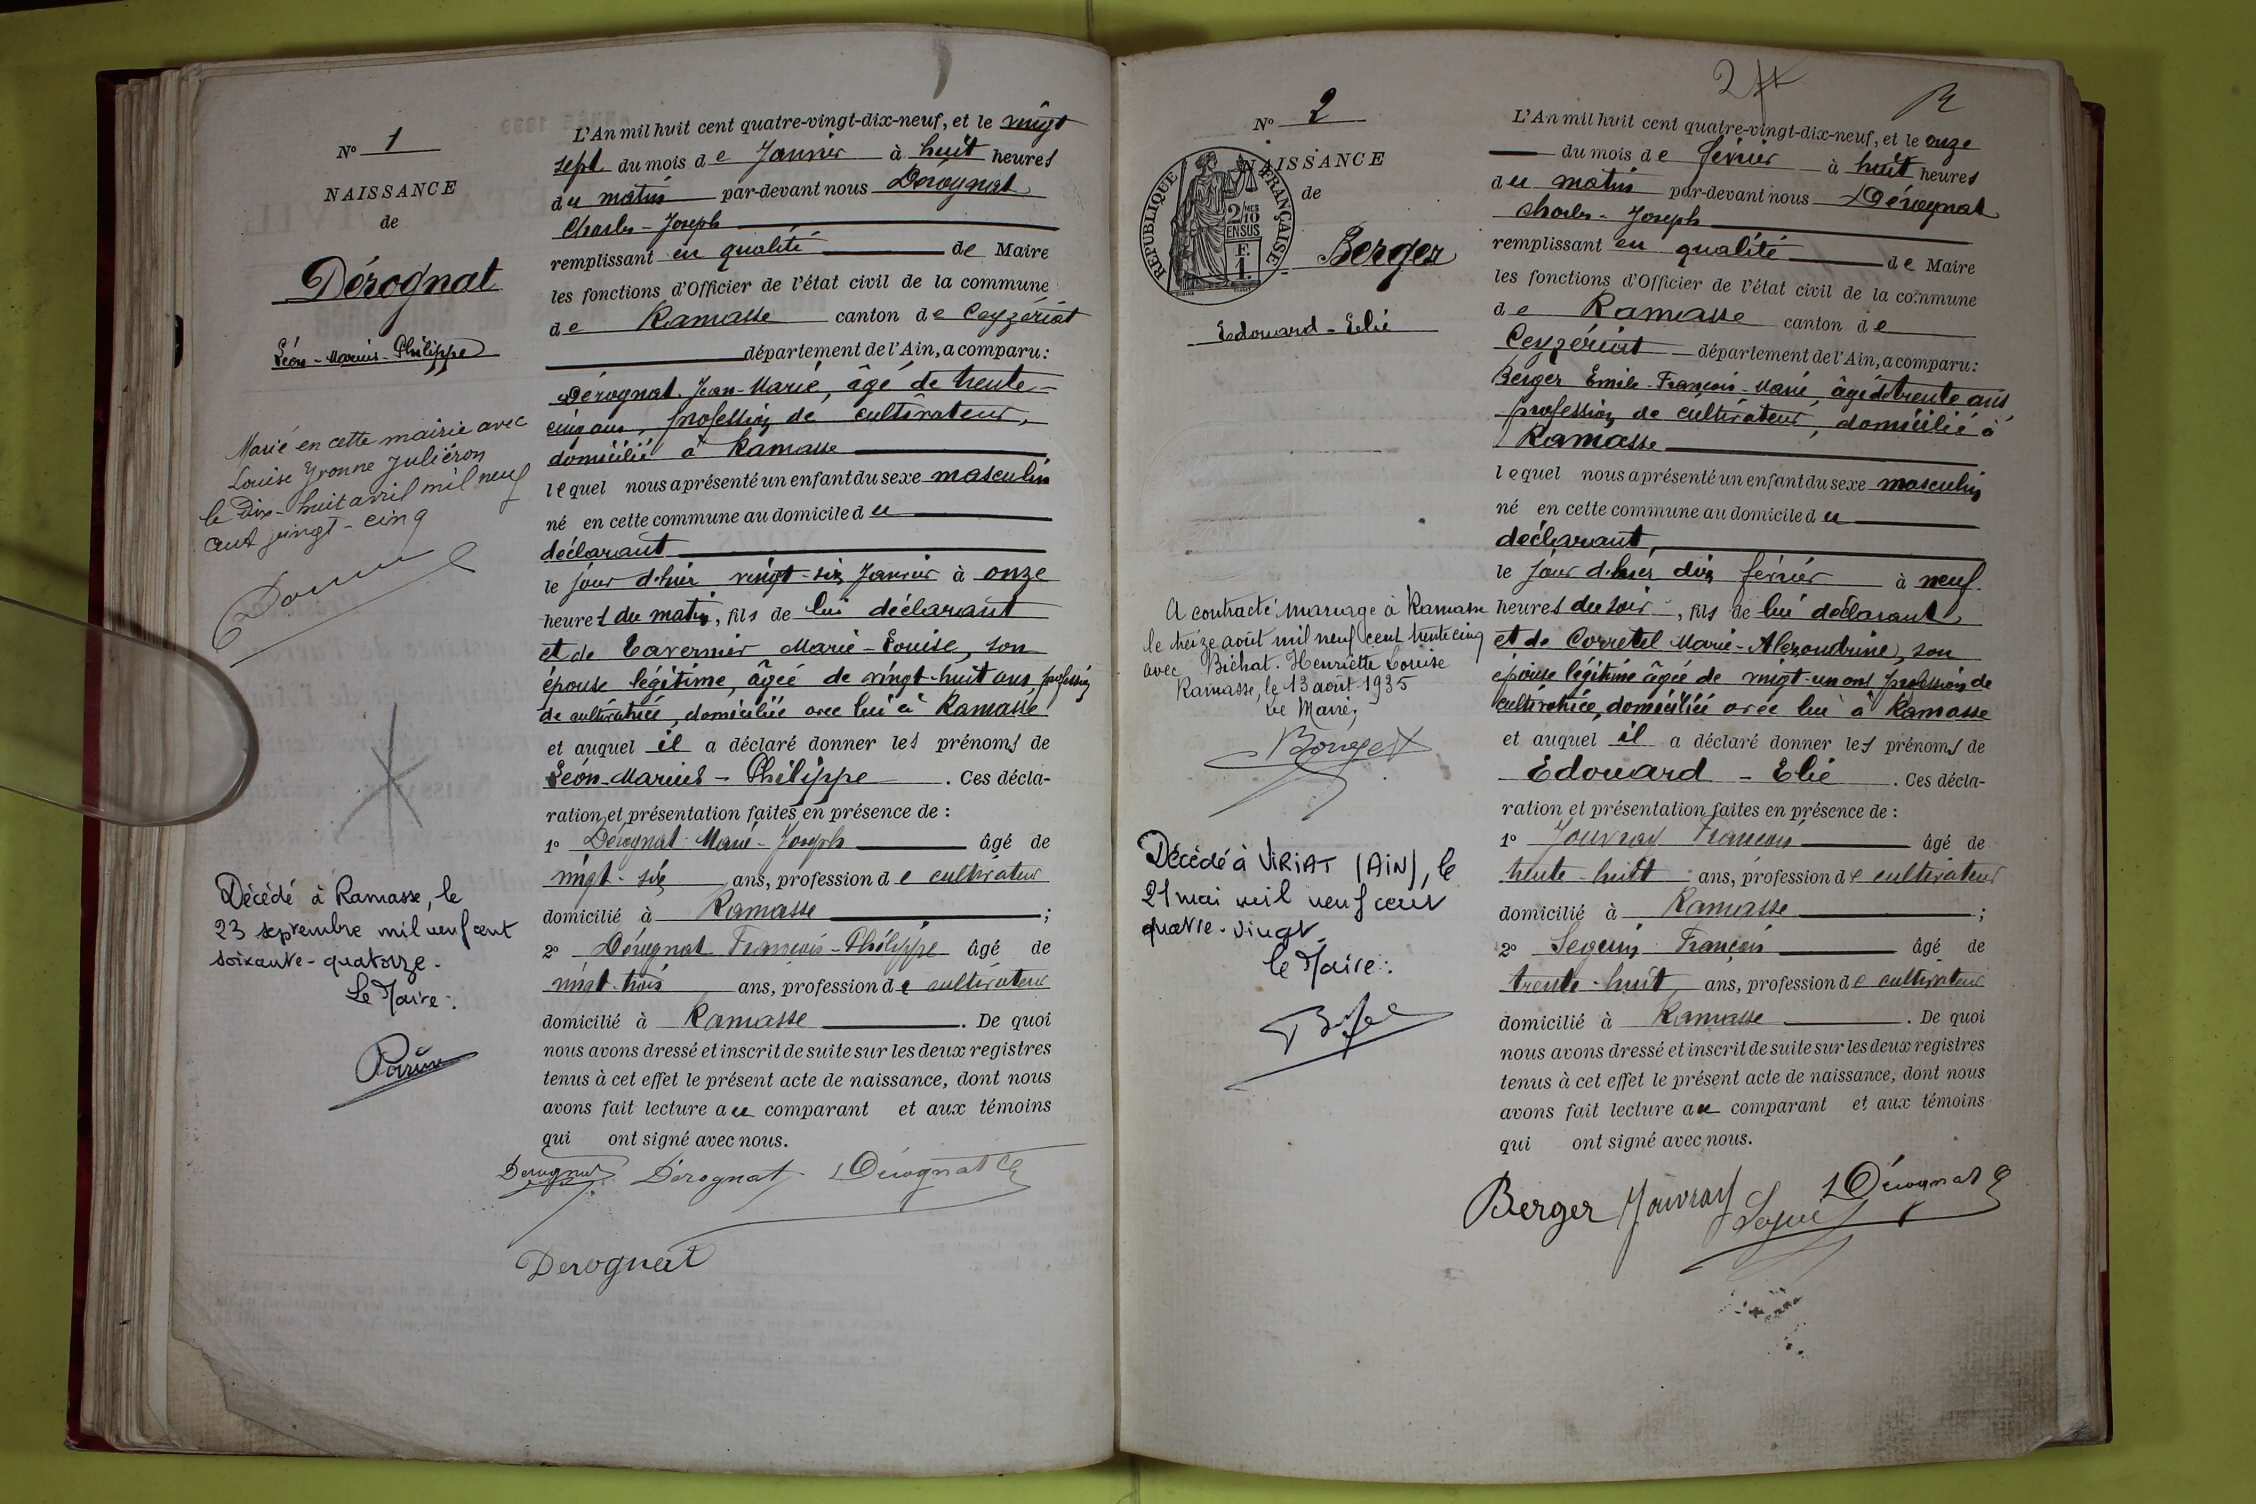 N° 1
NAISSANCE
de
Dérognat
Léon-Marius-Philippe
Marié en cette mairie avec
Louise Yvonne Juliéron
le Dix-huit avril mil neuf
cent vingt-cinq
Décédé à Ramasse, le
23 septembre mil neuf cent
soixante-quatorze.
Le Maire:
L'An mil huit cent quatre-vingt-dix-neuf, et le vingt
sept du mois de Janvier à huit heures
du matin par-devant nous Dérognat
Charles-Joseph
remplissant en qualité de Maire
les fonctions d'Officier de l'état civil de la commune
de Ramasse canton de Ceyzériat
département de l'Ain, a comparu:
Dérognat Jean-Marie, âgé de trente-
cinq ans, profession de cultivateur,
domicilié à Ramasse
lequel nous a présenté un enfant du sexe masculin
né en cette commune au domicile du
déclarant
le jour d'hier vingt-six Janvier à onze
heures du matin, fils de lui déclarant
et de Tavernier Marie-Louise, son
épouse légitime, âgée de vingt-huit ans, profession
de cultivatrice, domiciliée avec lui à Ramasse
et auquel il a déclaré donner les prénoms de
Léon-Marius-Philippe. Ces décla-
ration et présentation faites en présence de:
1° Dérognat Marie-Joseph âgé de
vingt-six ans, profession de cultivateur
domicilié à Ramasse;
2° Dérognat François-Philippe âgé de
vingt-trois ans, profession de cultivateur
domicilié à Ramasse. De quoi
nous avons dressé et inscrit de suite sur les deux registres
tenus à cet effet le présent acte de naissance, dont nous
avons fait lecture au comparant et aux témoins
qui ont signé avec nous.
Derognat Dérognat Dérognat
Derognat
24
N° 2
NAISSANCE
de
RÉPUBLIQUE FRANÇAISE
2/10 MES
EN SUS
F.
1.
Berger
Edouard-Elie
A contracté mariage à Ramasse
le treize août mil neuf cent trente cinq
avec Bichat Henriette Louise
Ramasse, le 13 août 1935
Le Maire,
Décédé à VIRIAT (AIN), le
21 mai mil neuf cent
quatre-vingt
Le Maire:
L'An mil huit cent quatre-vingt-dix-neuf, et le onze
du mois de février à huit heures
du matin par-devant nous Dérognat
Charles-Joseph
remplissant en qualité de Maire
les fonctions d'Officier de l'état civil de la commune
de Ramasse canton de
Ceyzériat département de l'Ain, a comparu:
Berger Emile-François-Marie, âgé de trente ans
profession de cultivateur, domicilié à
Ramasse
lequel nous a présenté un enfant du sexe masculin
né en cette commune au domicile du
déclarant,
le jour d'hier dix février à neuf
heures du soir, fils de lui déclarant,
et de Corretel Marie-Alexandrine, son
épouse légitime âgée de vingt-un ans profession de
cultivatrice, domiciliée avec lui à Ramasse
et auquel il a déclaré donner les prénoms de
Edouard-Elie. Ces décla-
ration et présentation faites en présence de:
1° Jouvray François âgé de
trente-huit ans, profession de cultivateur
domicilié à Ramasse;
2° Seguin François âgé de
trente-huit ans, profession de cultivateur
domicilié à Ramasse. De quoi
nous avons dressé et inscrit de suite sur les deux registres
tenus à cet effet le présent acte de naissance, dont nous
avons fait lecture au comparant et aux témoins
qui ont signé avec nous.
Berger Jouvray Dérognat